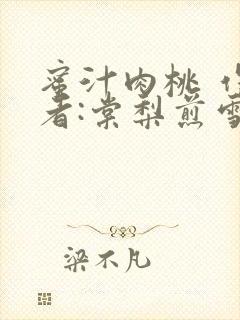 蜜汁肉桃 作
者:棠梨煎雪
梁不凡